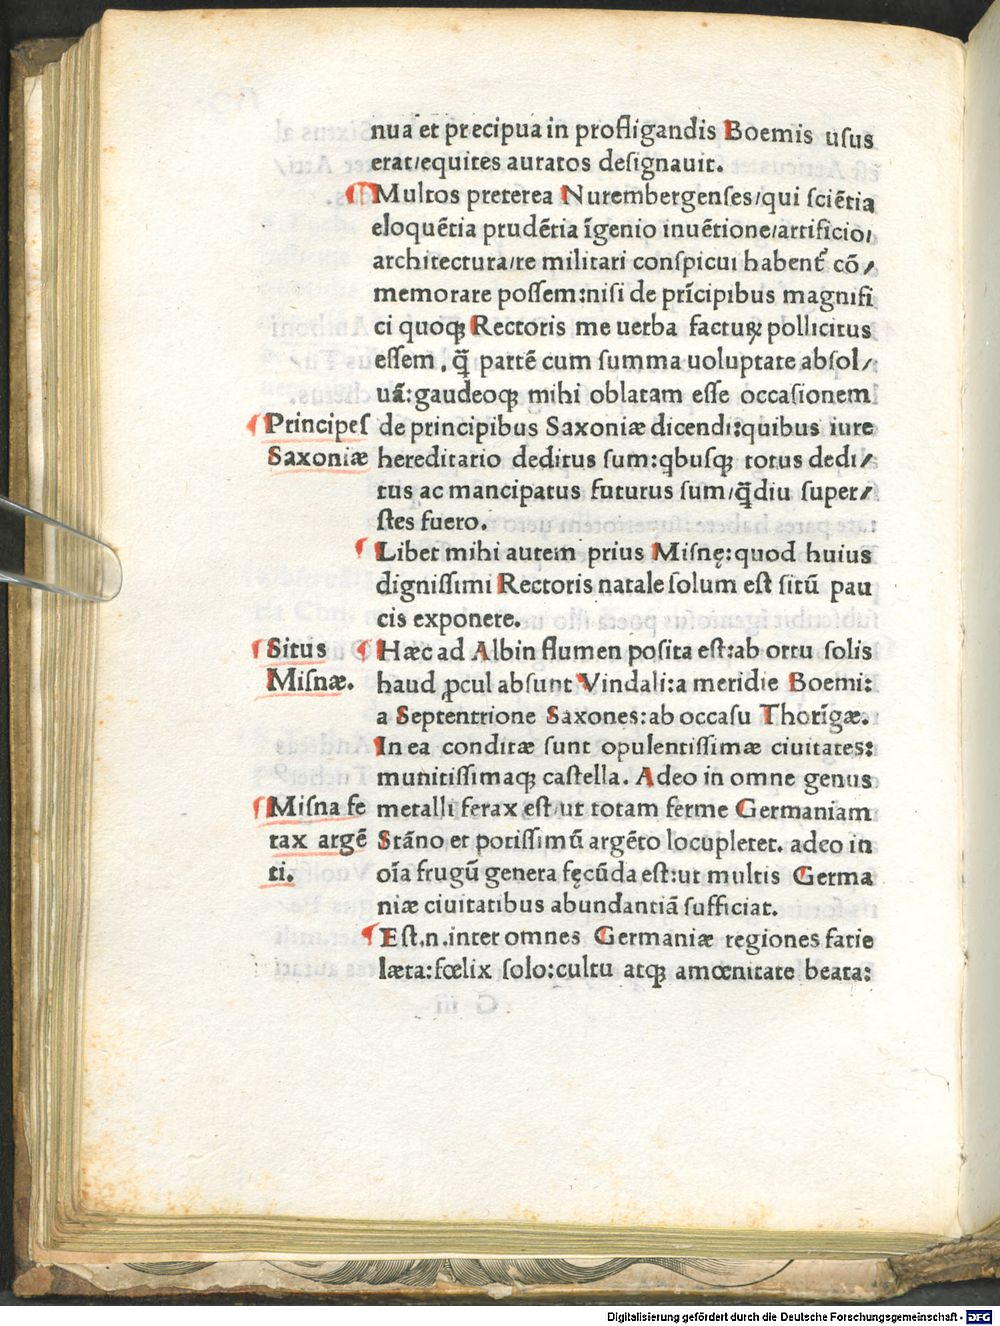 nua et precipua in profligandis Boemis usus
erat/equites auratos designauit.
¶Multos preterea Nurembergenses/qui sciētia
eloquētia prudētia īgenio inuētione/artificio/
architectura/re militari conspicui habent᷑ cō/
memorare possem:nisi de prīcipibus magnifi
ci quoqꝫ Rectoris me uerba factuꝝ pollicitus
essem. q̄ partē cum summa uoluptate absol/
uā:gaudeoqꝫ mihi oblatam esse occasionem
¶Principes
Saxoniæ
de principibus Saxoniæ dicendi:quibus iure
hereditario deditus sum:qbusqꝫ totus dedi/
tus ac mancipatus futurus sum/q̄diu super/
stes fuero.
¶Libet mihi autem prius Misnę:quod huius
dignissimi Rectoris natale solum est sitū pau
cis exponere.
¶Situs
Misnæ.
¶Hæc ad Albin flumen posita est:ab ortu solis
haud ꝓcul absunt Vindali:a meridie Boemi:
a Septentrione Saxones:ab occasu Thorīgæ.
In ea conditæ sunt opulentissimæ ciuitates:
munitissimaqꝫ castella. Adeo in omne genus
¶Misna fe
rax argē
ti.
metalli ferax est/ut totam ferme Germaniam
Stāno et potissimū argēto locupletet. adeo in
oīa frugū genera fęcūda est:ut multis Germa
niæ ciuitatibus abundantiā sufficiat.
¶Est.n.inter omnes Germaniæ regiones facie
læta:fœlix solo:cultu atqꝫ amœnitate beata:
Digitalisierung gefördert durch die Deutsche Forschungsgemeinschaft - DFG